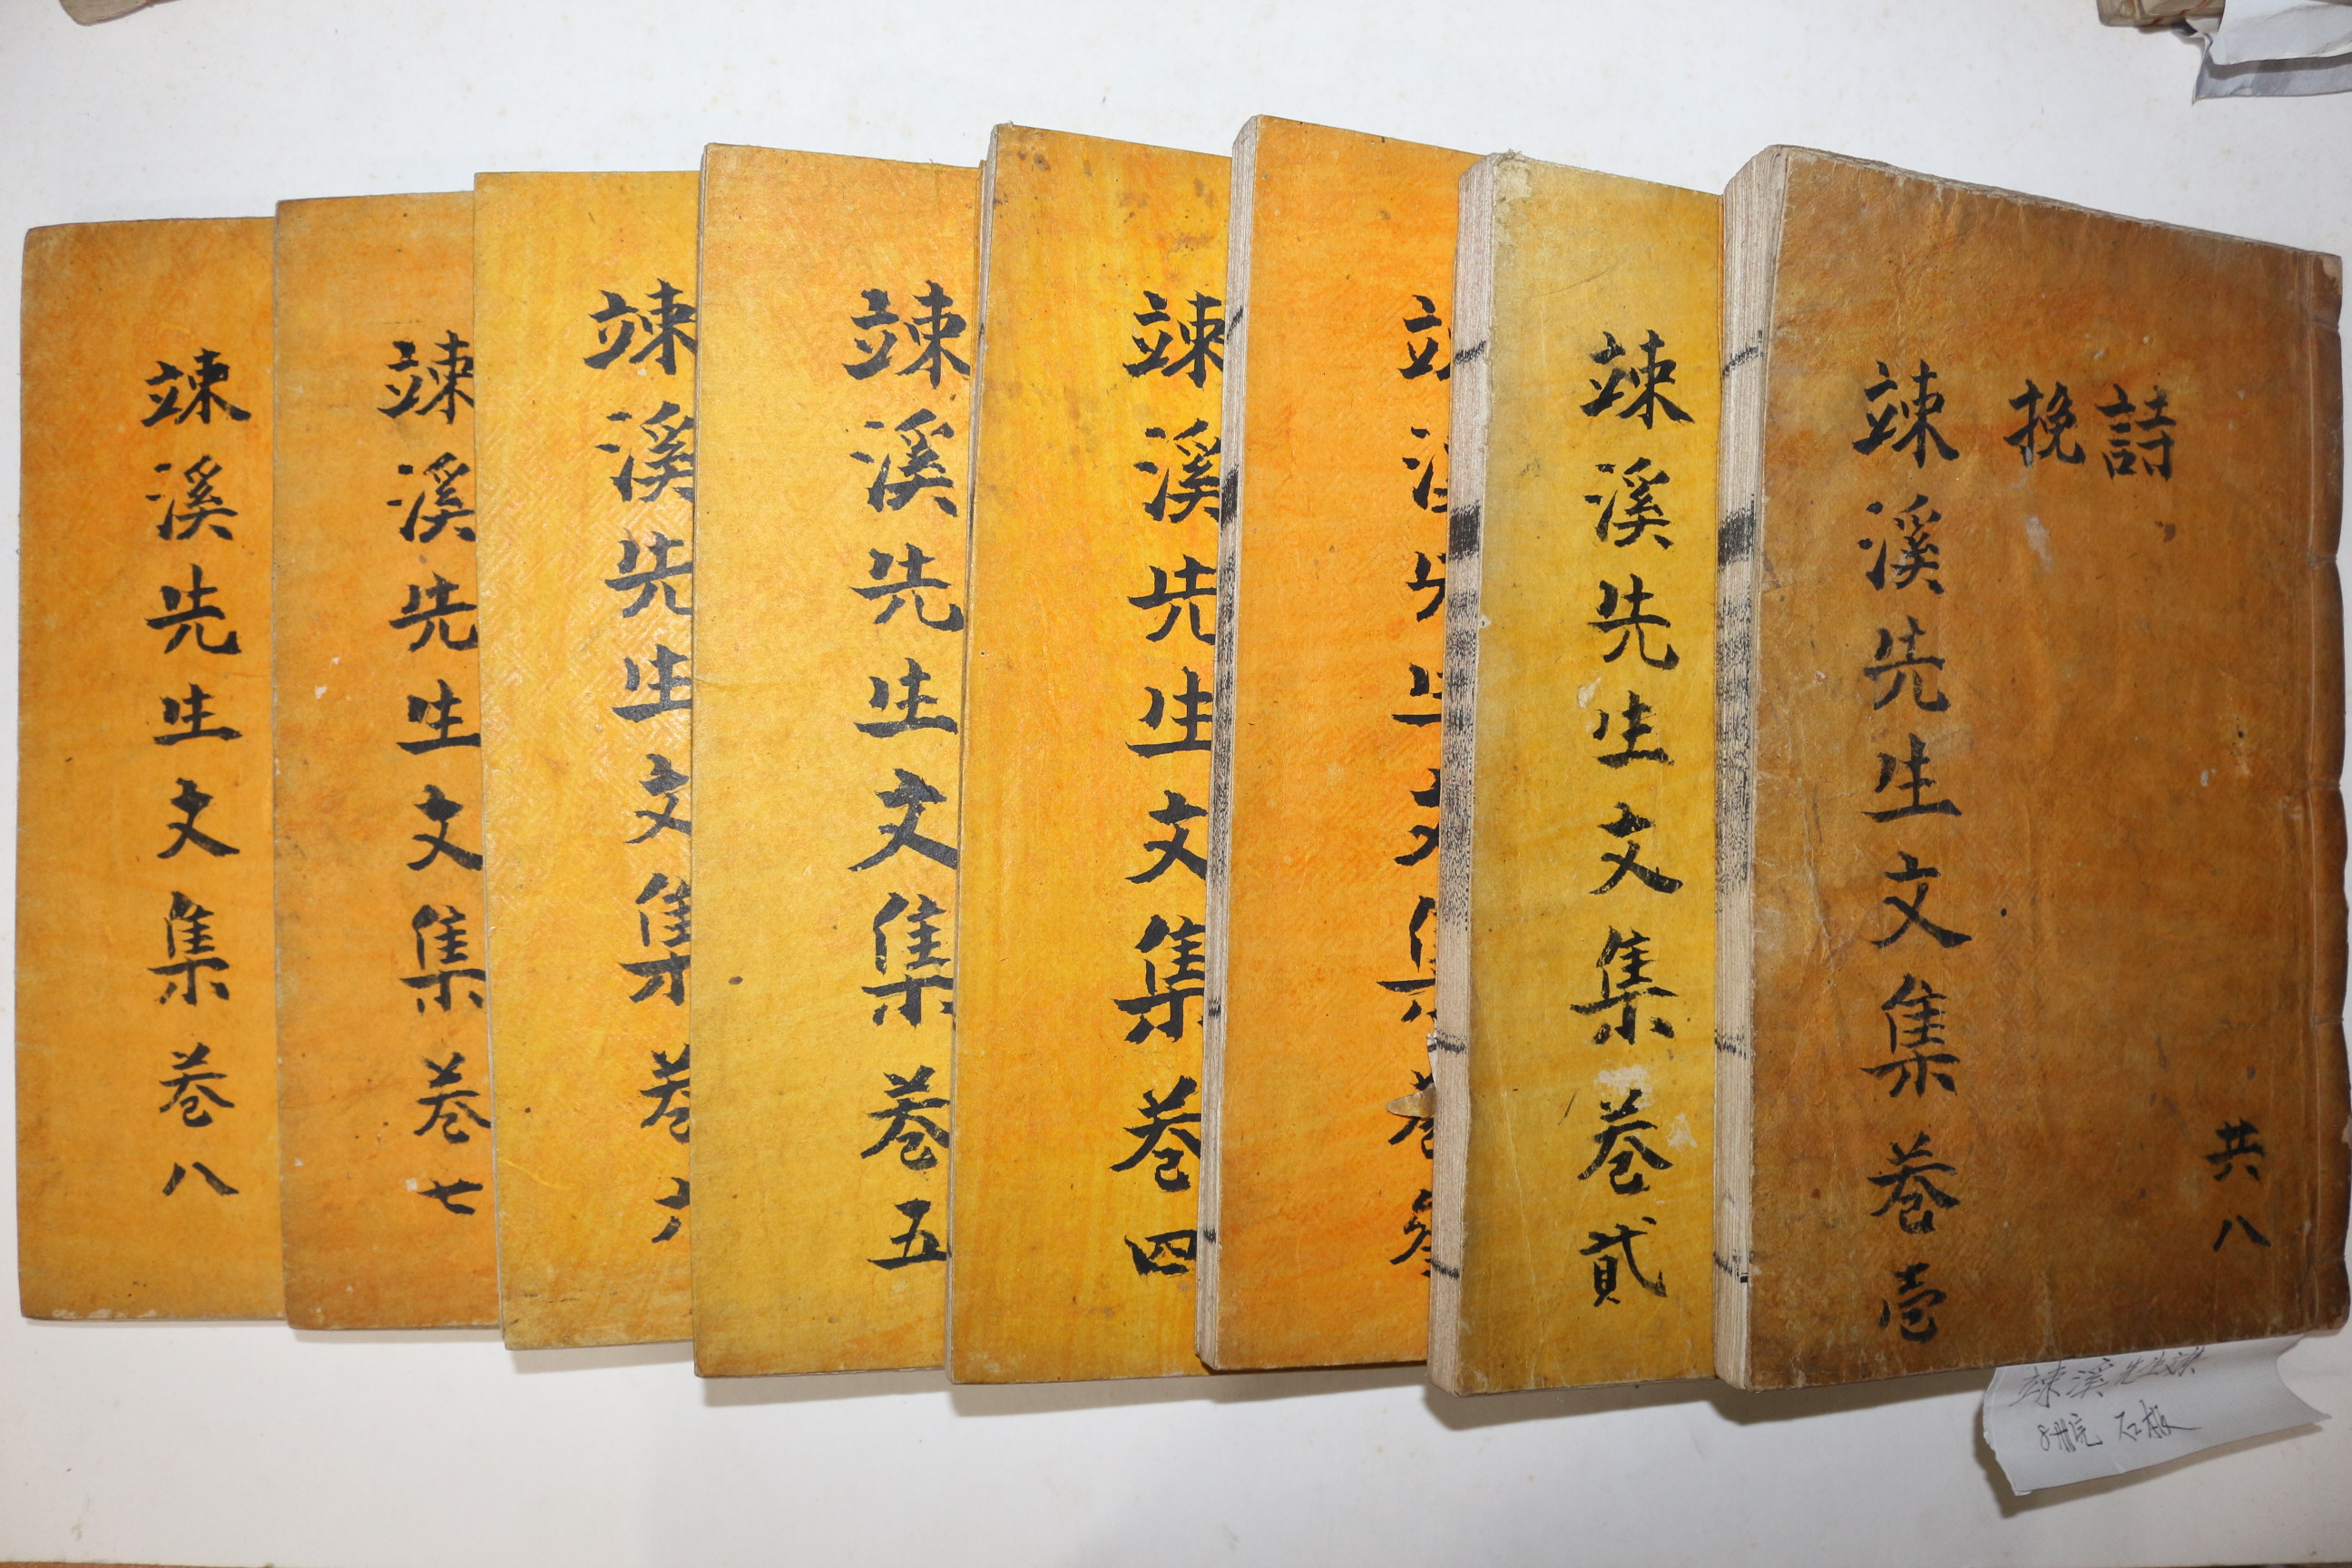 詩
挽
共八
竦溪先生文集 卷壱
竦溪先生文集 卷貳
竦溪先生文集 卷叅
竦溪先生文集 卷四
竦溪先生文集 卷五
竦溪先生文集 卷六
竦溪先生文集 卷七
竦溪先生文集 卷八
竦溪先生文集
8冊完 石板